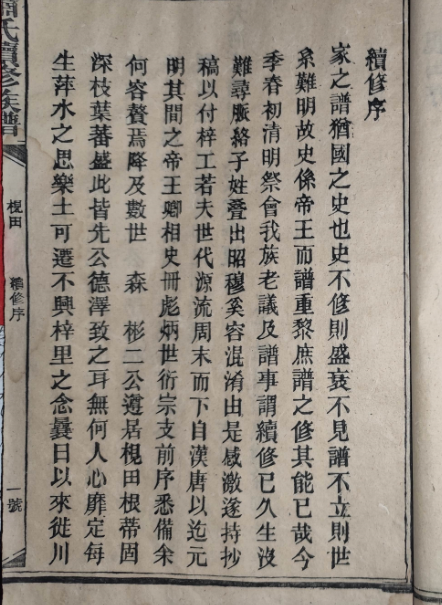 續修序
家之譜猶國之史也史不修則盛衰不見譜不立則世
系難明故史係帝王而譜重黎庶譜之修其能已哉今
季春初清明祭會我族老議及譜事謂續修已久生沒
難尋脈絡子姓疊出昭穆奚容混淆由是感激遂持抄
稿以付梓工若夫世代源流周末而下自漢唐以迄元
明其間之帝王卿相史冊彪炳世衍宗支前序悉備余
何容贅焉降及數世 森 彬二公遵居梘田根蒂固
深枝葉蕃盛此皆先公德澤致之耳無何人心靡定每
生萍水之思樂土可遷不興梓里之念曩日以來徙川
氏續修族譜
梘田 續修序
一號